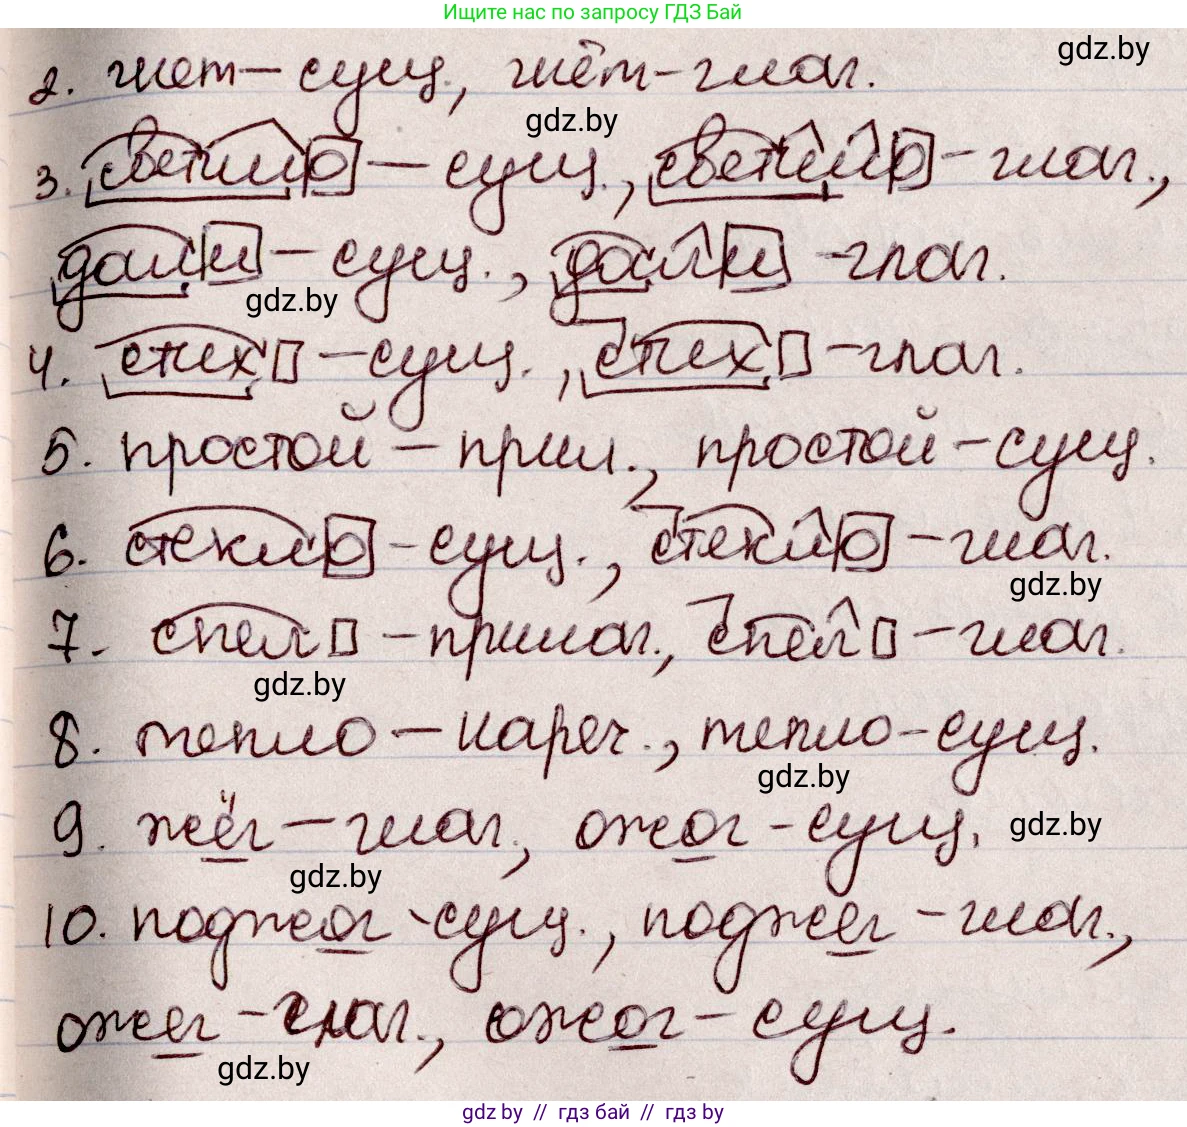 Ищите нас по запросу ГДЗ Бай
gdz.by
2. гнет — сущ., гнёт - глаг.
gdz.by
3. светило — сущ., светило - глаг.,
дали - сущ., дали - глаг.
gdz.by
4. спех - сущ., спех - глаг.
5. простой - прил., простой - сущ.
6. стекло - сущ., стекло - глаг.
gdz.by
7. спел - прилаг., спел - глаг.
gdz.by
8. тепло - нареч., тепло - сущ.
gdz.by
9. жёг - глаг., ожог - сущ.
gdz.by
gdz.by
10. поджог - сущ., поджег - глаг.,
ожег - глаг., ожог - сущ.
gdz.by
gdz by // гдз бай // гдз by